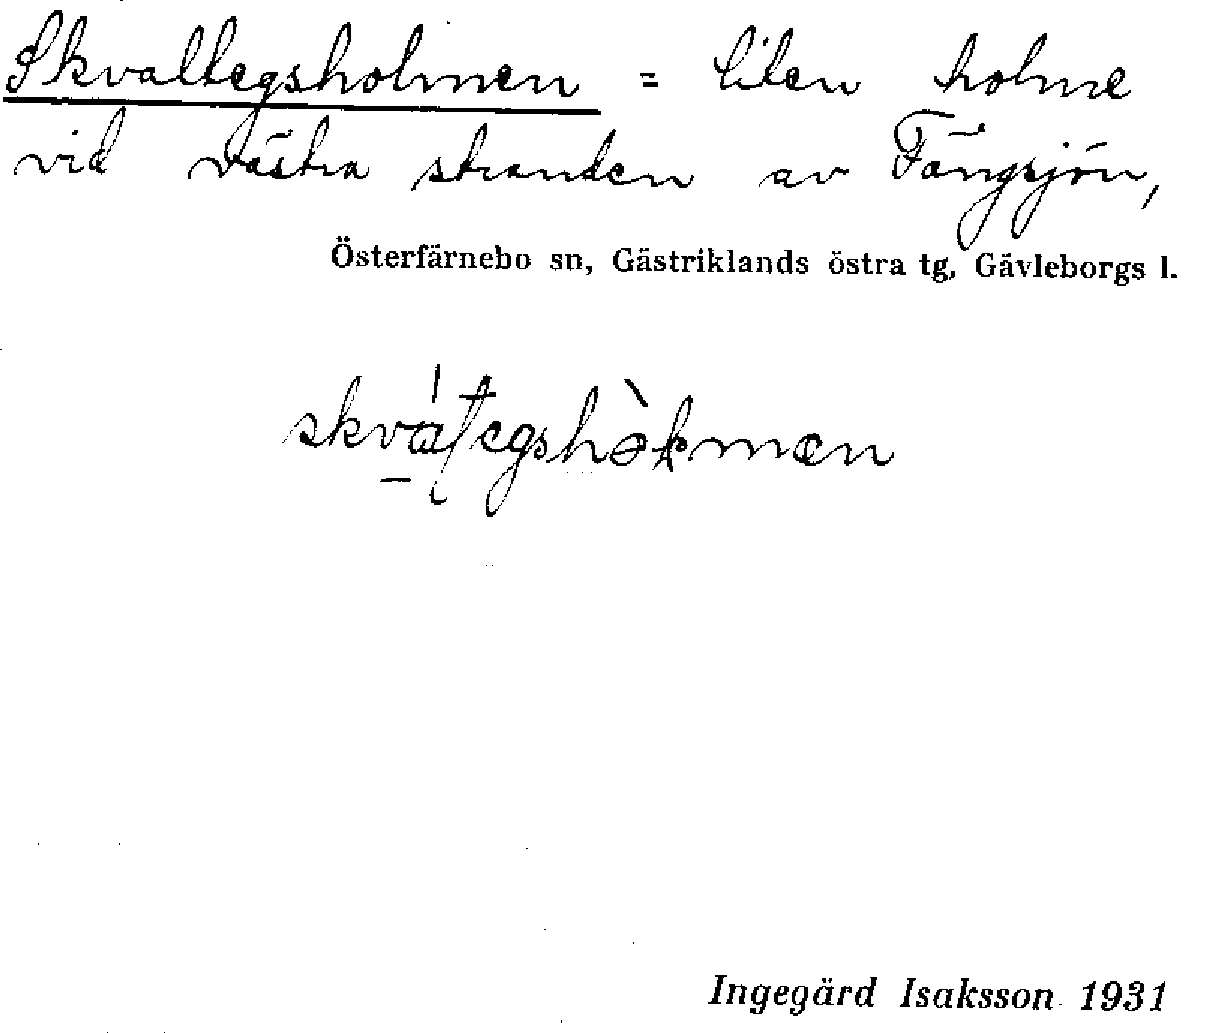 Skvaltegsholmen = liten holme
vid västra stranden av Fängsjön,
Österfärnebo sn, Gästriklands östra tg, Gävleborgs l.
Ingegärd Isaksson 1931